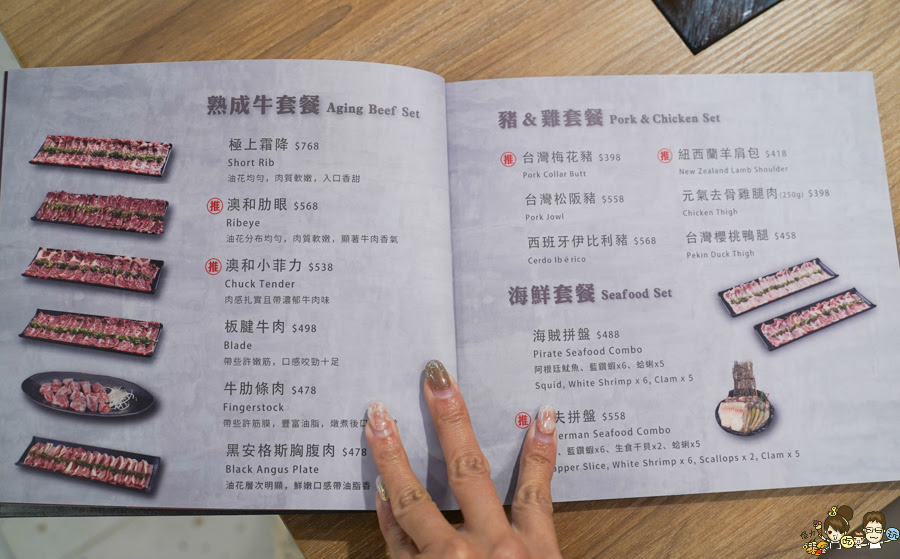 熟成牛套餐 Aging Beef Set
極上霜降 $768
Short Rib
油花均勻，肉質軟嫩，入口香甜
推 澳和肋眼 $568
Ribeye
油花分布均勻，肉質軟嫩，顯著牛肉香氣
推 澳和小菲力 $538
Chuck Tender
肉感扎實且帶濃郁牛肉味
板腱牛肉 $498
Blade
帶些許嫩筋，口感咬勁十足
牛肋條肉 $478
Fingerstock
帶些許筋膜，豐富油脂，燉煮後口
黑安格斯胸腹肉 $478
Black Angus Plate
油花層次明顯，鮮嫩口感帶油脂香
豬 & 雞套餐 Pork & Chicken Set
推 台灣梅花豬 $398
Pork Collar Butt
台灣松阪豬 $558
Pork Jowl
西班牙伊比利豬 $568
Cerdo Ibérico
推 紐西蘭羊肩包 $418
New Zealand Lamb Shoulder
元氣去骨雞腿肉(250g) $398
Chicken Thigh
台灣櫻桃鴨腿 $458
Pekin Duck Thigh
海鮮套餐 Seafood Set
海賊拼盤 $488
Pirate Seafood Combo
阿根廷魷魚、藍鑽蝦x6、蛤蜊x5
Squid, White Shrimp x 6, Clam x 5
推 夫拼盤 $558
erman Seafood Combo
、藍鑽蝦x6、生食干貝x2、蛤蜊x5
apper Slice, White Shrimp x 6, Scallops x 2, Clam x 5